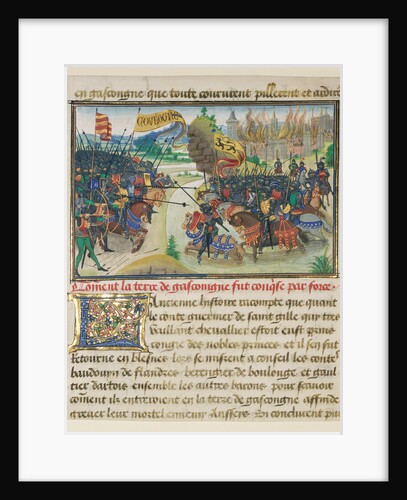 en gascongne que toute coururent pillerent et ardire
GOULOGNE
Coment la terre de gascongne fut conqse par force
Ancienne histoire racompte que quant
le conte guerinet de saint gille qui tres
vaillant chevallier estoit eust prins
congie des nobles princes et il sen fut
retourne en blesnes lors se misrent a conseil les conte
baudouyn de flandres berengier de boulonge et gaul
tier dartois ensemble les autres barons pour scavoir
coment ilz entreroient en la terre de gascongne affin de
grever leur mortel ennemy Anssers Si conclurent plu